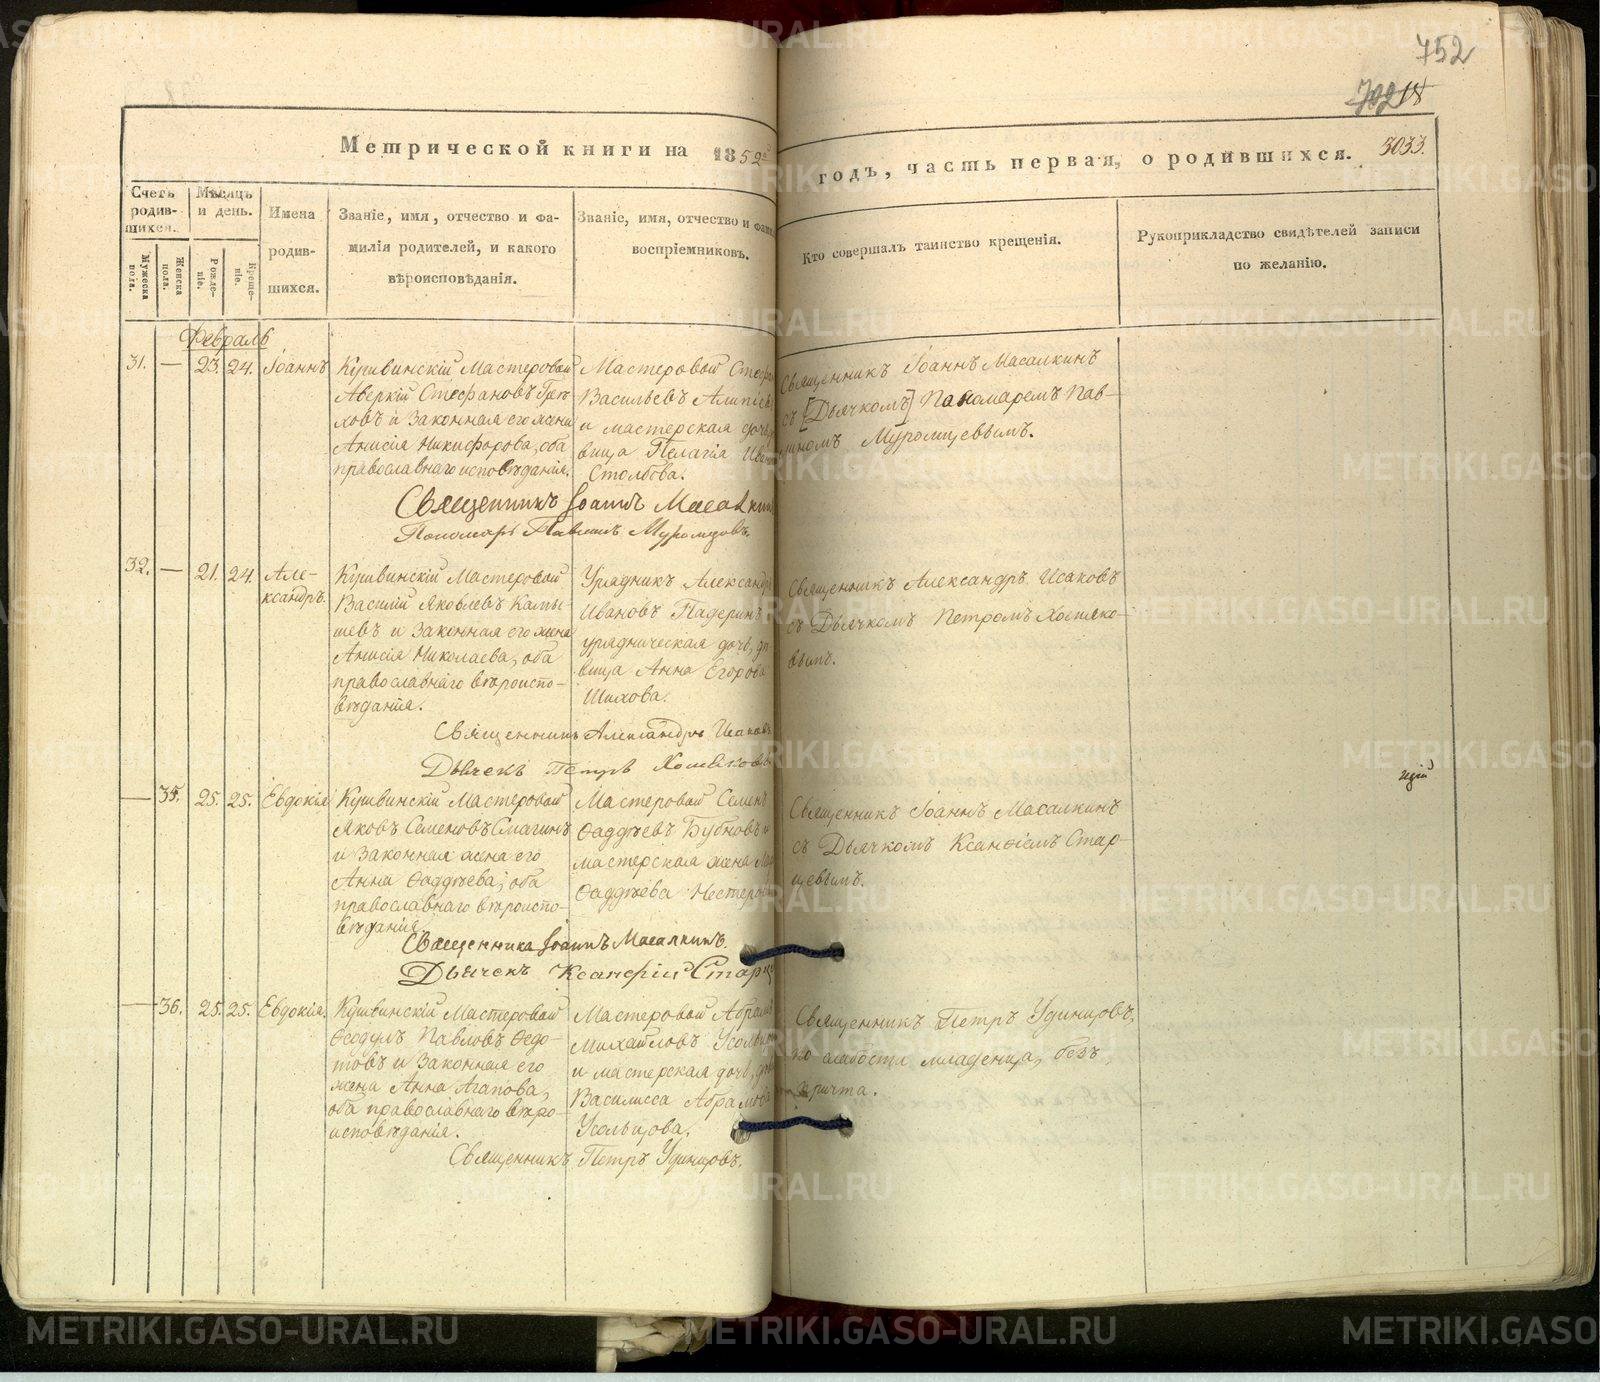 752
Метрической книги на 1852й годъ, часть первая, о родившихся. 3033.
Счетъ родив-
шихся.
Мужеска пола.
Женска пола.
Мѣсяцъ и день.
Рожде-
ніе.
Креще-
ніе.
Имена
родив-
шихся.
Званіе, имя, отчество и фа-
милія родителей, и какого
вѣроисповѣданія.
Званіе, имя, отчество и
воспріемниковъ.
Кто совершалъ таинство крещенія.
Рукоприкладство свидѣтелей записи
по желанію.
Февраль
31. — 23. 24. Іоаннъ
Кушвинскій Мастеровой
Аверкій Стефановъ
и Законная его жена
Анисія Никифорова, оба
православнаго исповѣданія.
Мастеровой
Васильевъ
и мастерская
вица Пелагія
Столбова.
Священникъ Іоаннъ Масалкинъ
съ [Дьячкомъ] Пономаремъ Пав-
линомъ Муромцевымъ.
Священникъ Іоаннъ Масалкинъ
Пономарь Павлинъ Муромцовъ.
32. — 21. 24. Але-
ксандръ.
Кушвинскій Мастеровой
Василій Яковлевъ Камы-
шевъ и Законная его жена
Анисія Николаева, оба
православнаго вѣроиспо-
вѣданія.
Урядникъ Александръ
Ивановъ Падеринъ
урядническая дочь, дѣ
вица Анна Егорова
Шихова.
Священникъ Александръ Исаковъ
съ Дьячкомъ Петромъ Хомяко-
вымъ.
Священникъ Александръ Исаковъ
Дьячекъ Петръ Хомяковъ
— 35. 25. 25. Евдокія
Кушвинскій Мастеровой
Яковъ Семеновъ Смагинъ
и Законная жена его
Анна Ѳаддѣева, оба
православнаго вѣроиспо-
вѣданія.
Мастеровой Семенъ
Ѳаддѣевъ Бубновъ и
мастерская жена
Ѳаддѣева
Священникъ Іоаннъ Масалкинъ
съ Дьячкомъ Ксанѳіемъ Стар-
цевымъ.
Священникъ Іоаннъ Масалкинъ.
Дьячекъ Ксанфій
— 36. 25. 25. Евдокія.
Кушвинскій Мастеровой
Ѳеодулъ Павловъ Ѳедо-
товъ и Законная его
жена Анна Агапова,
оба православнаго вѣро-
исповѣданія.
Мастеровой
Михайловъ
и мастерская дочь,
Василисса
Усольцова.
Священникъ Петръ Удинцовъ,
по слабости младенца, безъ
причта.
Священникъ Петръ Удинцовъ.
METRIKI.GASO-URAL.RU